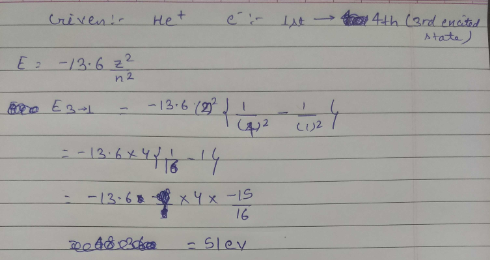 Given:- He⁺ e⁻:- 1st → 4th (3rd excited state)
E = -13.6 z²/n²
E₃→₁ = -13.6 (2)² { 1/(4)² - 1/(1)² }
= -13.6 × 4 { 1/16 - 1 }
= -13.6 × 4 × -15/16
= 51ev